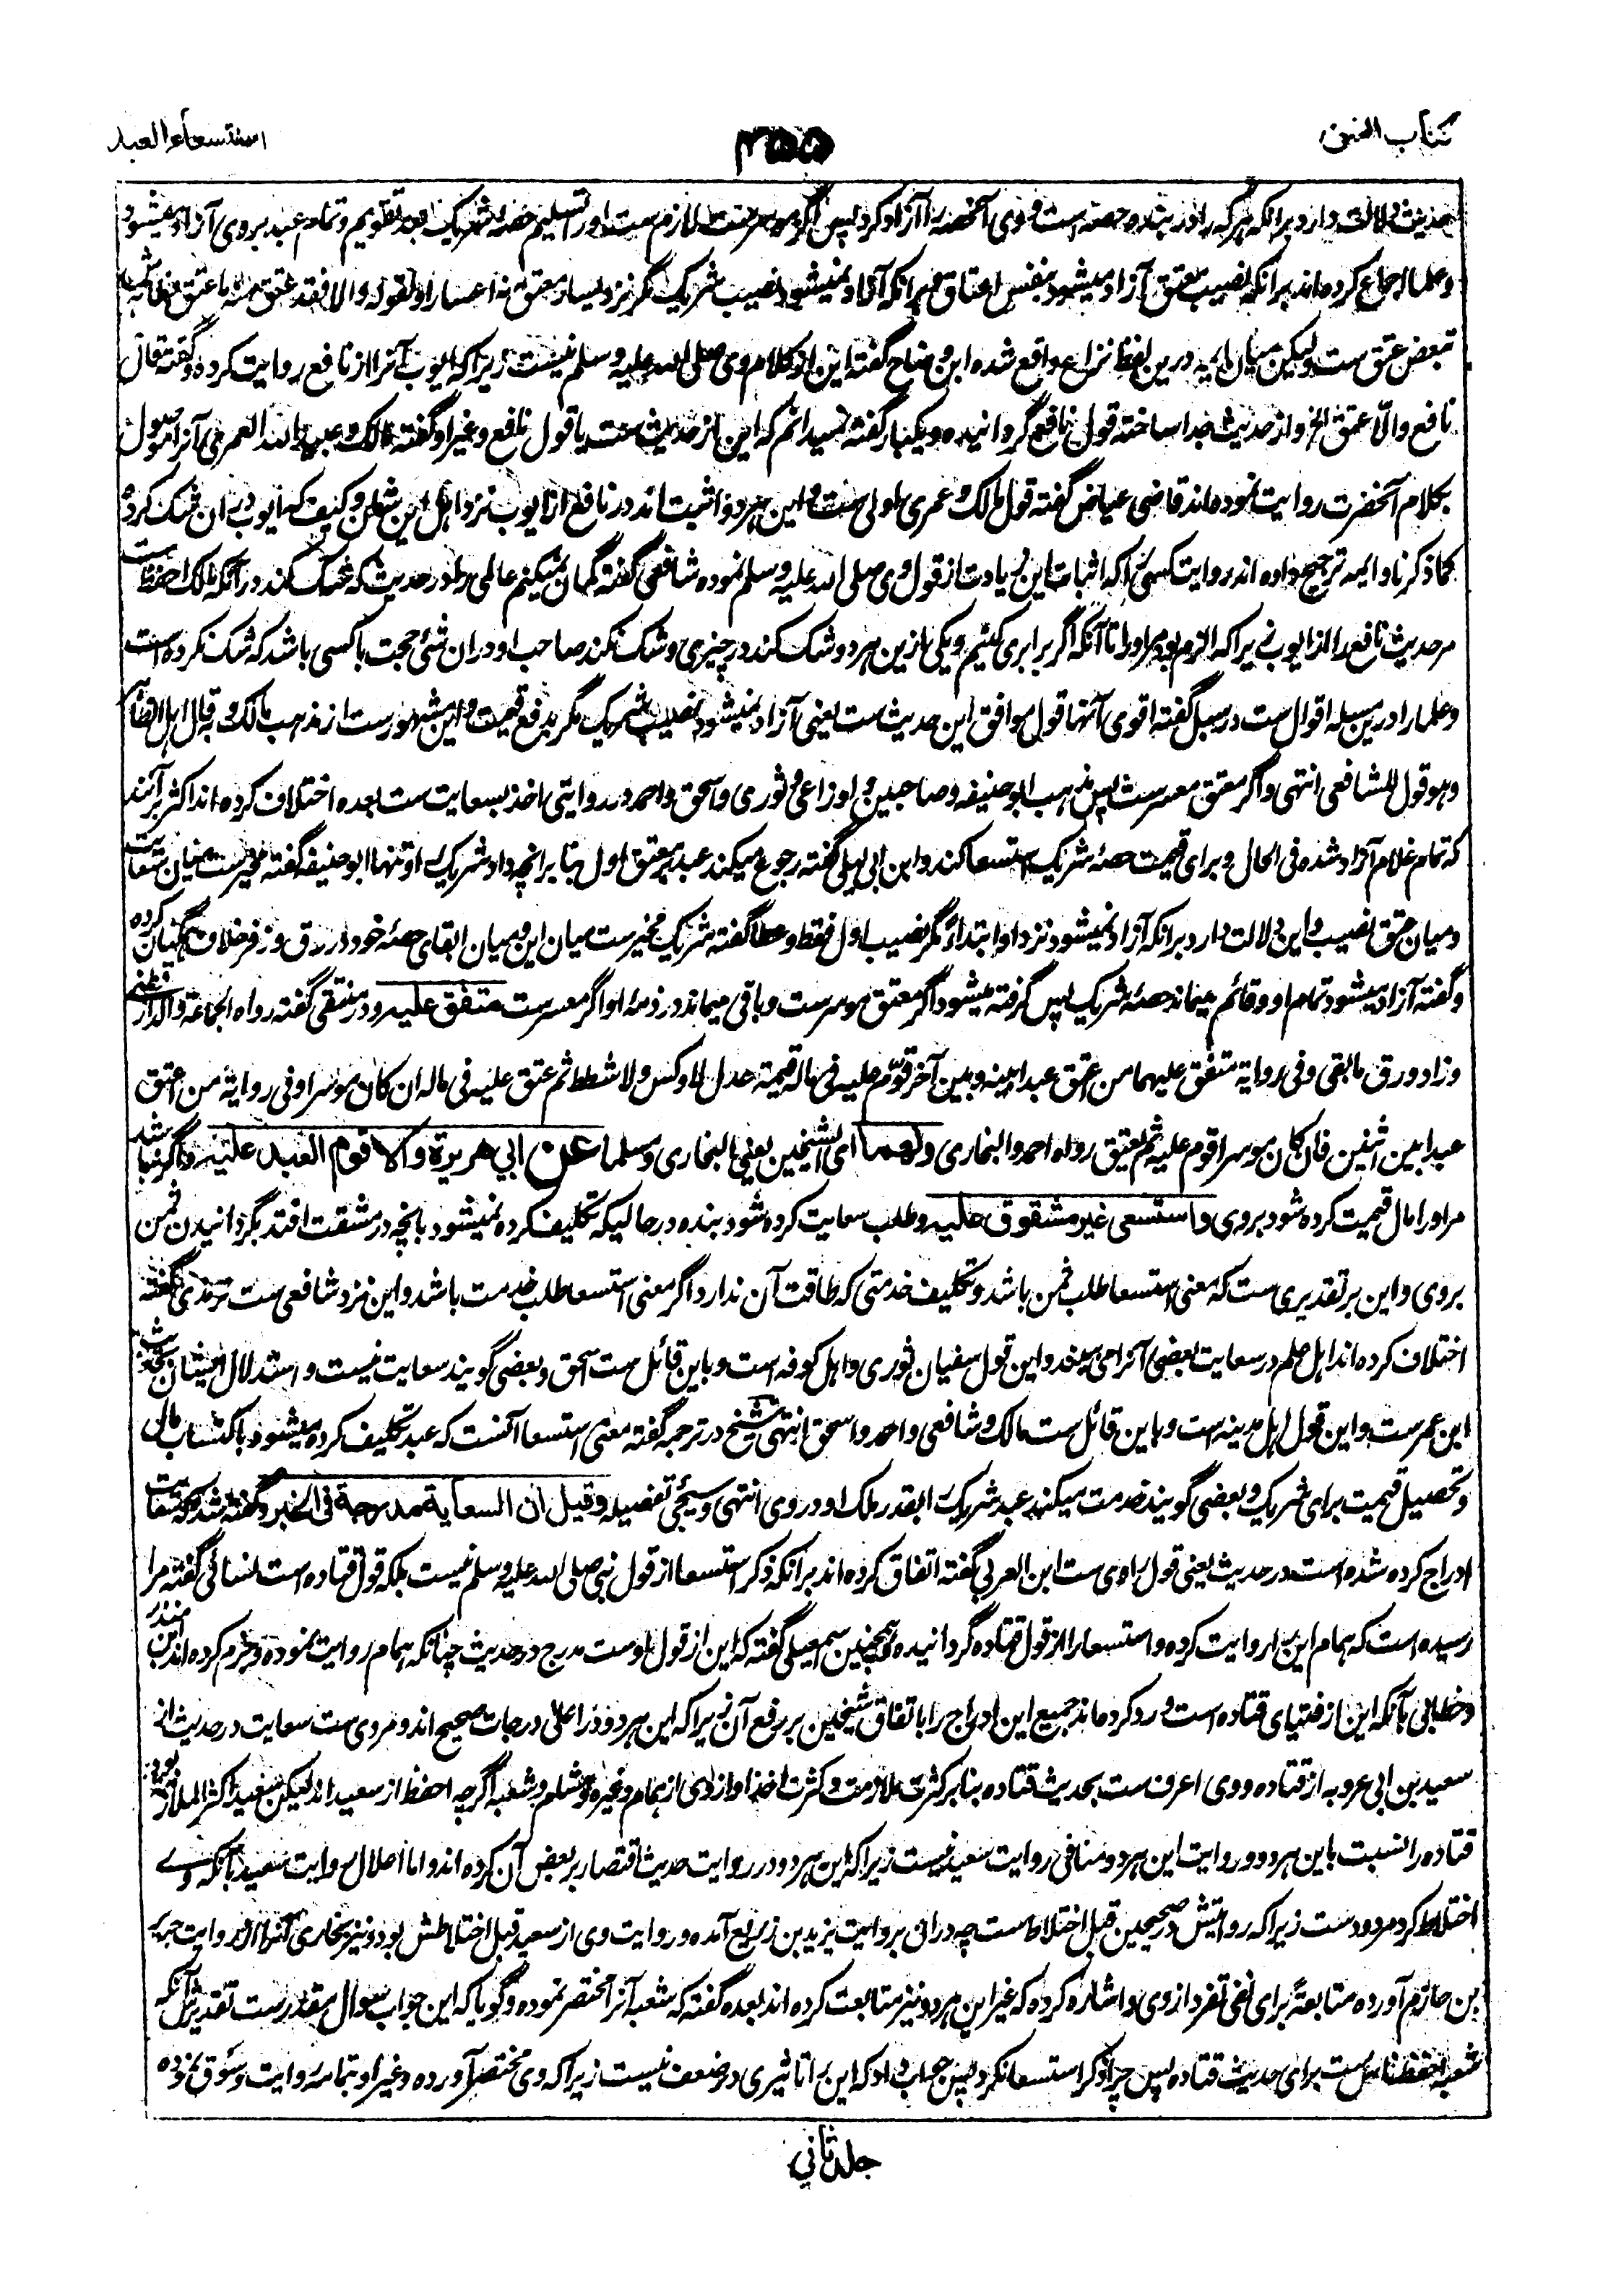 کتاب العتق
۴۵۵
استسعاء العبد
حدیث دلالت دارد بر آنکه هر که را در بنده حصه است و وی آنحصه را آزاد کرد پس اگر موسرست لازم ست او را تسلیم حصهٔ شریک بعد تقویم و تمام عبد بروی آزاد میشود
و علما اجماع کرده اند بر آنکه نصیب معتق آزاد میشود بنفس اعتاق و بر آنکه آزاد نمیشود نصیب شریک مگر نزد یسار معتق نه اعسار او لقوله والا فقد عتق منه ما عتق
تبعض عتق ست ولیکن میان ایمه درین لفظ نزاع واقع شده ابن وضاح گفته این از کلام وی صلی الله علیه وسلم نیست زیرا که ایوب آنرا از نافع روایت کرده و گفته قال
نافع والّا عتق الخ و از حدیث جدا ساخته قول نافع گردانیده و یکبار گفته نمیدانم که این از حدیث ست یا قول نافع و غیر او گفته مالک و عبید الله العمری آنرا موصول
بکلام آنحضرت روایت نموده اند قاضی عیاض گفته قول مالک و عمری اولی ست و این هر دو اثبت اند در نافع از ایوب نزد اهل این شان و کیف که ایوب در ان شک کرده
کما ذکرنا و ایمه ترجیح داده اند روایت کسی را که اثبات این زیادت از قول وی صلی الله علیه وسلم نموده شافعی گفته گمان نمیکنم عالمی را در حدیث که شک کند در آنکه مالک احفظ ست
مر حدیث نافع را از ایوب زیرا که الزم بود مر او را تا آنکه اگر برابری کنیم و یکی ازین هر دو شک کند در چیزی و شک نکند صاحب او در ان شئ حجت با کسی باشد که شک نکرده است
و علما را درین مسئله اقوال ست در سبل گفته اقوی آنها قول موافق این حدیث ست یعنی آزاد نمیشود نصیب شریک مگر بدفع قیمت و این مشهورست از مذهب مالک و به قال اهل الظاهر
وهو قول للشافعی انتهی و اگر معتق معسرست پس مذهب ابوحنیفه و صاحبین و اوزاعی و ثوری و اسحق و احمد در روایتی اخذ بسعایت ست بعده اختلاف کرده اند اکثر بر آنند
که تمام غلام آزاد شده فی الحال و برای قیمت حصهٔ شریک استسعا کند و ابن ابی لیلی گفته رجوع میکند عبد بر معتق اول بنا بر آنچه داد شریک او تنها ابوحنیفه گفته مخیرست میان استسعایت
و میان عتق نصیب و این دلالت دارد بر آنکه آزاد نمیشود نزد او ابتداءً مگر نصیب اول فقط و عطا گفته شریک مخیرست میان این و میان ابقای حصهٔ خود در رق و زفر خلاف همگنان کرده
و گفته آزاد میشود تمام او و قائم میماند حصهٔ شریک پس گرفته میشود اگر معتق موسرست و باقی میماند در ذمهٔ او اگر معسرست متفق علیه و در منتقی گفته رواه الجماعة والدار قطنی
وزاد ورق ما بقی وفی روایة متفق علیهما من اعتق عبدا بینه وبین آخر قوّم علیه فی ماله قیمة عدل لا وکس ولا شطط ثم عتق علیه فی ماله ان کان موسرا وفی روایة من اعتق
عبدا بین اثنین فان کان موسرا قوم علیه ثم یعتق رواه احمد والبخاری ولهما ای الشیخین یعنی البخاری ومسلما عن ابی هریرة والا قوم العبد علیه و اگر نباشد
مر او را مال قیمت کرده شود بروی واستسعی غیر مشقوق علیه و طلب سعایت کرده شود بنده در حالیکه تکلیف کرده نمیشود بانچه در مشقت افتد بگردانیدن ثمن
بروی و این بر تقدیری ست که معنی استسعا طلب ثمن باشد و تکلیف خدمتی که طاقت آن ندارد اگر معنی استسعا طلب خدمت باشد و این نزد شافعی ست ترمذی گفته
اختلاف کرده اند اهل علم در سعایت بعضی آنرا می بینند و این قول سفیان ثوری و اهل کوفه است و باین قائل ست اسحق و بعضی گویند سعایت نیست و استدلال ایشان بحدیث
ابن عمرست و این قول اهل مدینه ست و باین قائل ست مالک و شافعی و احمد و اسحق انتهی شیخ در ترجمه گفته معنی استسعا آنست که عبد تکلیف کرده میشود باکتساب مال
و تحصیل قیمت برای شریک و بعضی گویند خدمت میکند عبد شریک را بقدر ملک او در وی انتهی وسیجئ تفصیله وقیل ان السعایة مدرجة فی الخبر و گفته شد که سعایت
ادراج کرده شده است در حدیث یعنی قول راوی ست ابن العربی گفته اتفاق کرده اند بر آنکه ذکر استسعا از قول نبی صلی الله علیه وسلم نیست بلکه قول قتاده است نسائی گفته مرا
رسیده است که همام این را روایت کرده و استسعا را از قول قتاده گردانیده و همچنین اسمعیلی گفته که این از قول اوست مدرج در حدیث چنانکه همام روایت نموده و جزم کرده اند ابن منذر
و خطابی بآنکه این از فتیای قتاده است و رد کرده اند جمیع این ادراج را باتفاق شیخین بر رفع آن زیرا که این هر دو در اعلی درجات صحیح اند و مروی ست سعایت در حدیث از
سعید بن ابی عروبه از قتاده و وی اعرف ست بحدیث قتاده بنا بر کثرت ملازمت و کثرت اخذ او از وی از همام و غیره و هشام و شعبه اگرچه احفظ از سعید اند لیکن سعید اکثر الملازمة بود
قتاده را نسبت باین هر دو و روایت این هر دو منافی روایت سعید نیست زیرا که این هر دو در روایت حدیث اقتصار بر بعض آن کرده اند و اما اعلال روایت سعید بآنکه وے
اختلاط کرد مردودست زیرا که روایتش در صحیحین قبل اختلاط ست چه در ان بروایت یزید بن زریع آمده و روایت وی از سعید قبل اختلاطش بود و نیز بخاری آنرا از روایت جریر
بن حازم آورده متابعةً برای نفی تفرد از وی و اشاره کرده که غیر این هر دو نیز متابعت کرده اند بعده گفته که شعبه آنرا مختصر نموده و گویا که این جواب سوال مقدرست تقدیرش آنکه
شعبه احفظ ناس ست برای حدیث قتاده پس چرا ذکر استسعا نکرد پس جواب داد که این را تاثیری در ضعف نیست زیرا که وی مختصر آورده و غیر او بتمامه روایت و سوق نموده
جلد ثانی